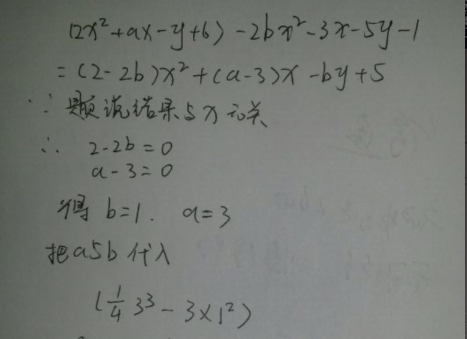 (2x²+ax-y+6)-2bx²-3x-5y-1
=(2-2b)x²+(a-3)x-6y+5
∵题说结果与x无关
∴ 2-2b=0
a-3=0
得 b=1. a=3
把a与b代入
(1/4 3³-3×1²)